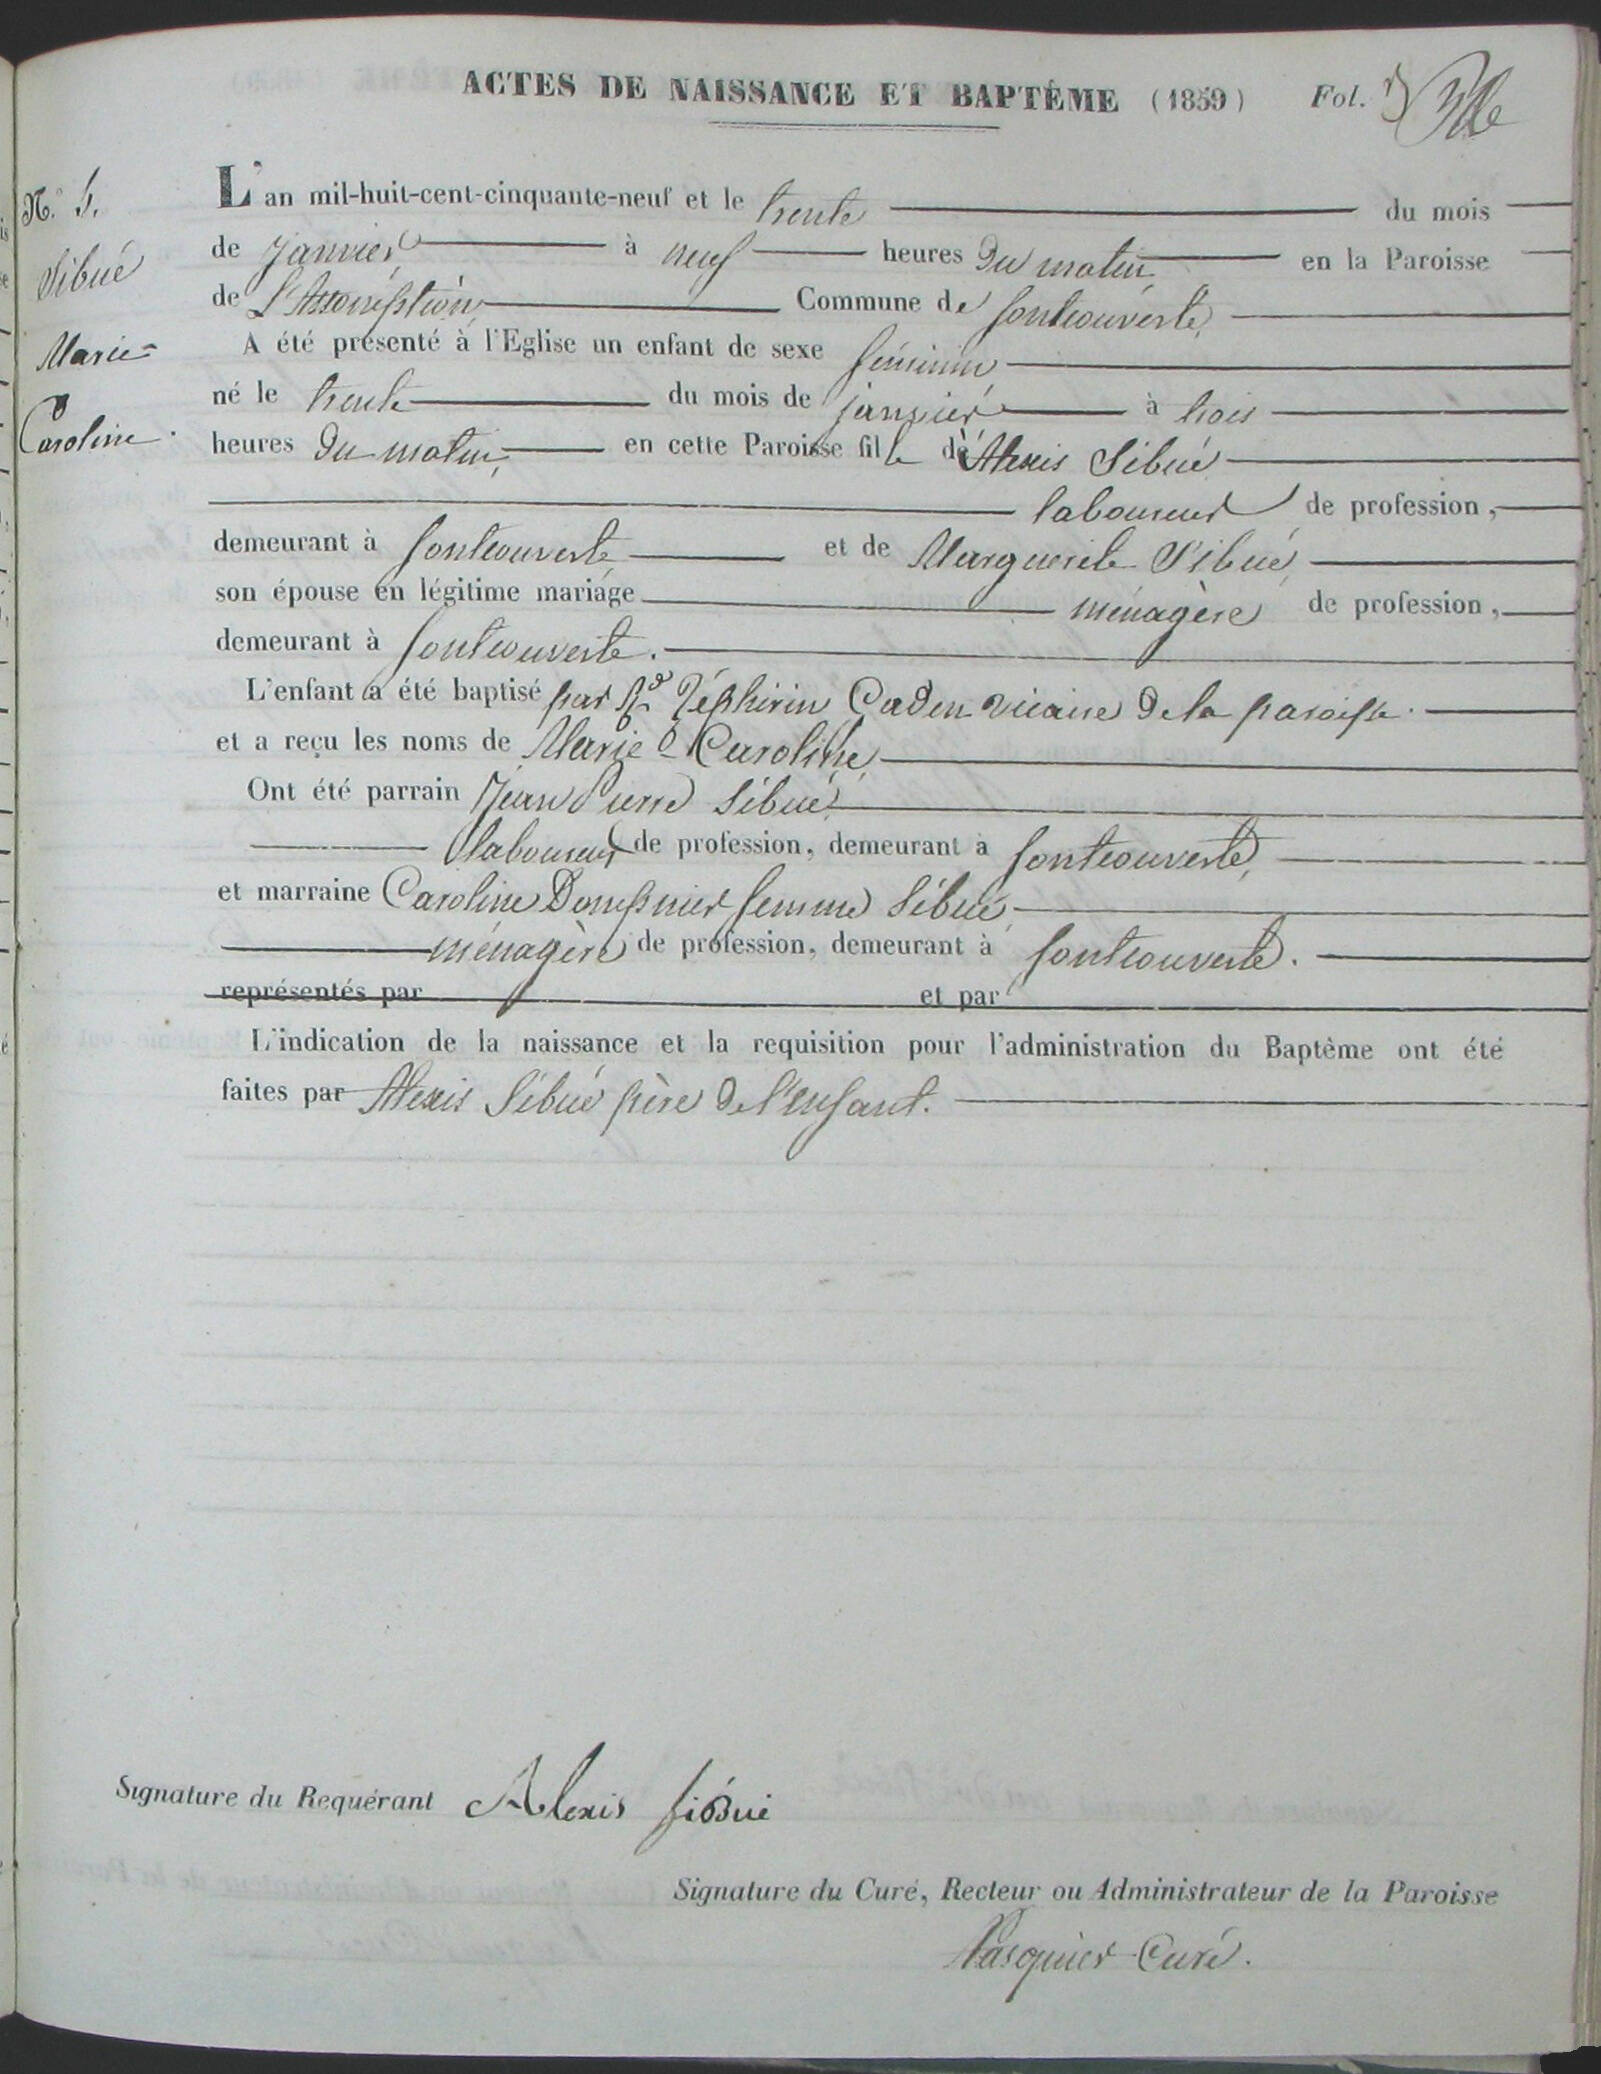 ACTES DE NAISSANCE ET BAPTÊME (1859) Fol. 3
N.° 5.
Sibué
Marie-
Caroline.
L'an mil-huit-cent-cinquante-neuf et le trente du mois
de janvier à neuf heures du matin, en la Paroisse
de L'Assomption, Commune de fontcouverte,
A été présenté à l'Eglise un enfant de sexe féminin
né le trente du mois de janvier à trois
heures du matin, en cette Paroisse fille de Alexis Sibué
laboureur de profession,
demeurant à fontcouverte et de Marguerite Sibué,
son épouse en légitime mariage ménagère de profession,
demeurant à fontcouverte.
L'enfant a été baptisé par Rd Zéphirin vicaire de la paroisse.
et a reçu les noms de Marie-Caroline,
Ont été parrain Jean Pierre Sibué,
laboureur de profession, demeurant à fontcouverte,
et marraine Caroline Dompnier femme Sibué,
ménagère de profession, demeurant à fontcouverte.
représentés par et par
L'indication de la naissance et la requisition pour l'administration du Baptême ont été
faites par Alexis Sibué père de l'enfant.
Signature du Requérant Alexis Sibué
Signature du Curé, Recteur ou Administrateur de la Paroisse
Pasquier Curé.